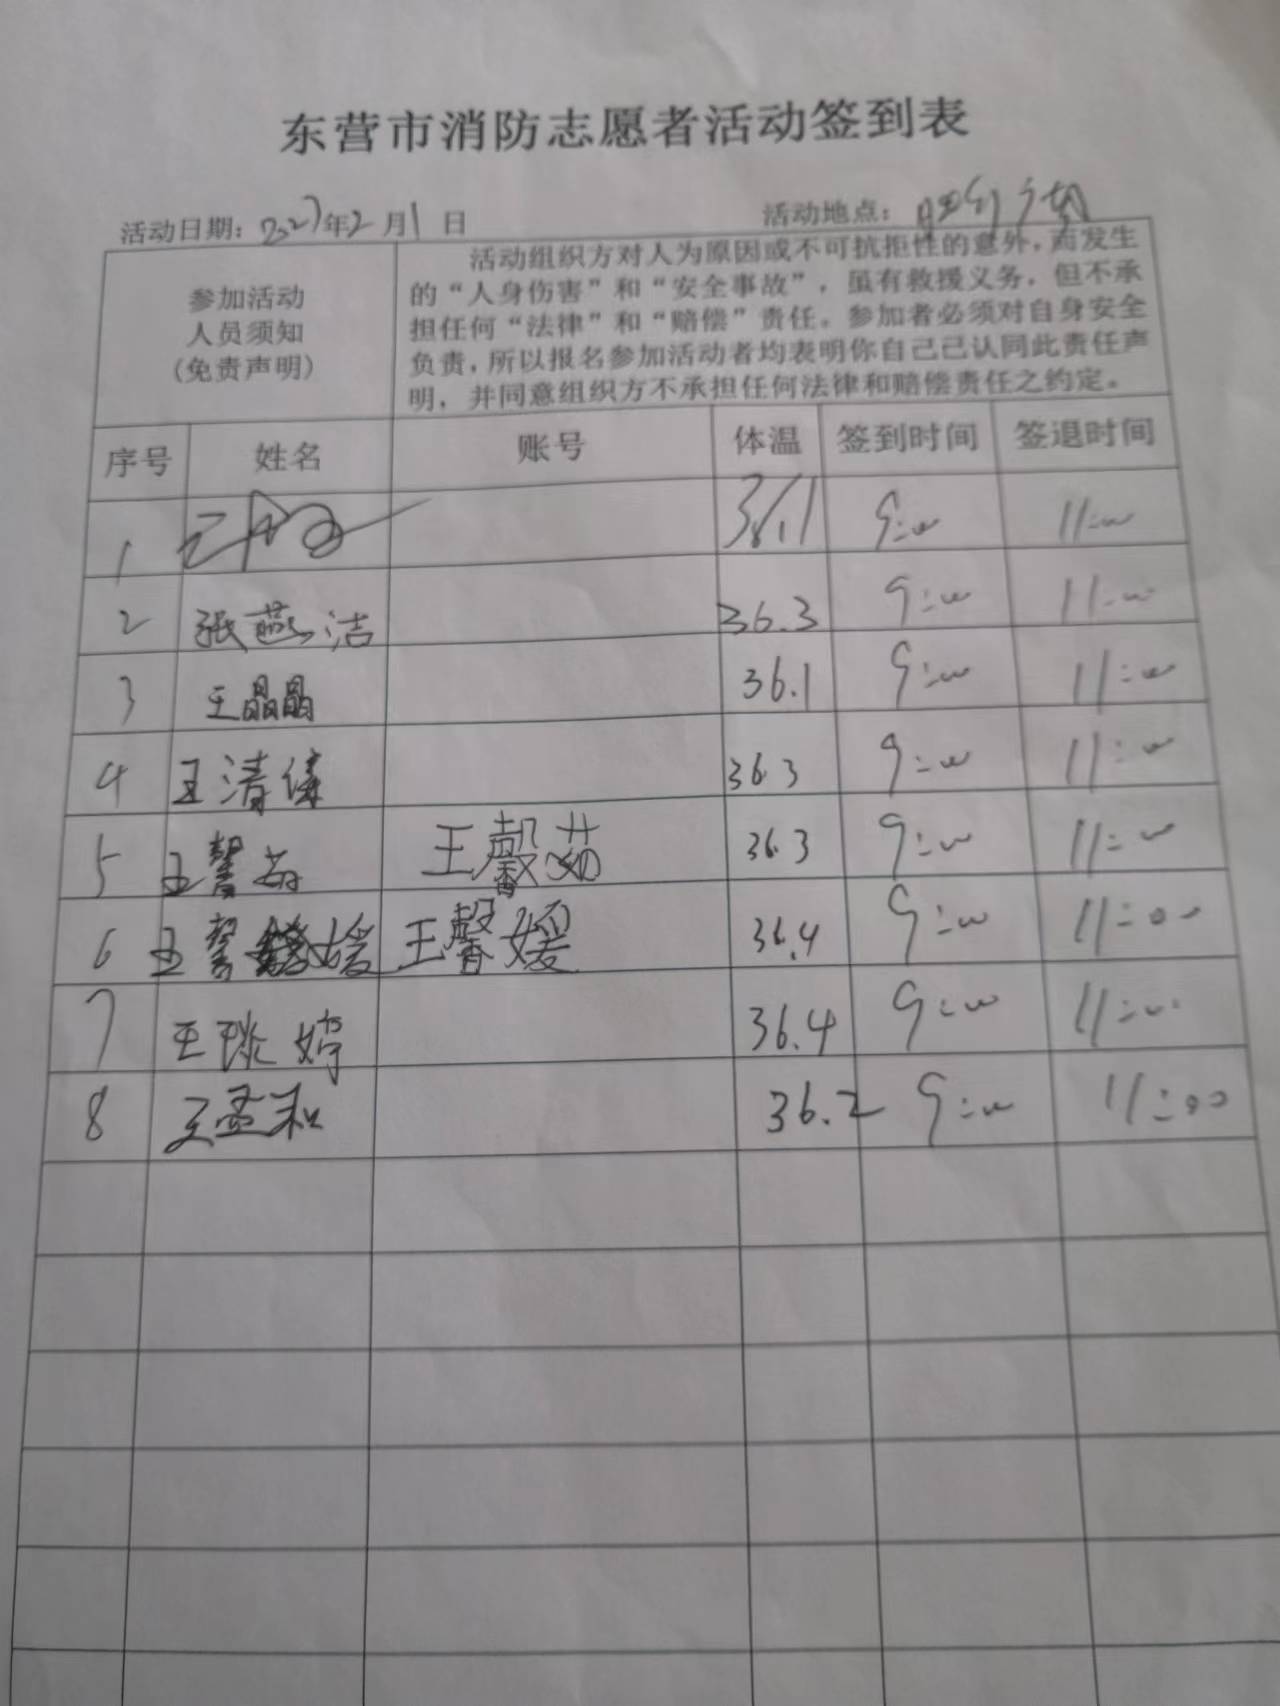 东营市消防志愿者活动签到表
活动日期: 2027年2月1日 活动地点:
参加活动
人员须知
(免责声明)
活动组织方对人为原因或不可抗拒性的意外，而发生
的“人身伤害”和“安全事故”，虽有救援义务，但不承
担任何“法律”和“赔偿”责任。参加者必须对自身安全
负责，所以报名参加活动者均表明你自己已认同此责任声
明，并同意组织方不承担任何法律和赔偿责任之约定。
序号 姓名 账号 体温 签到时间 签退时间
1 36.1 9:00 11:00
2 张燕洁 36.3 9:00 11:00
3 王晶晶 36.1 9:00 11:00
4 王清 36.3 9:00 11:00
5 王馨茹 王馨茹 36.3 9:00 11:00
6 王馨媛 王馨媛 36.4 9:00 11:00
7 王琰婷 36.4 9:00 11:00
8 王孟和 36.2 9:00 11:00